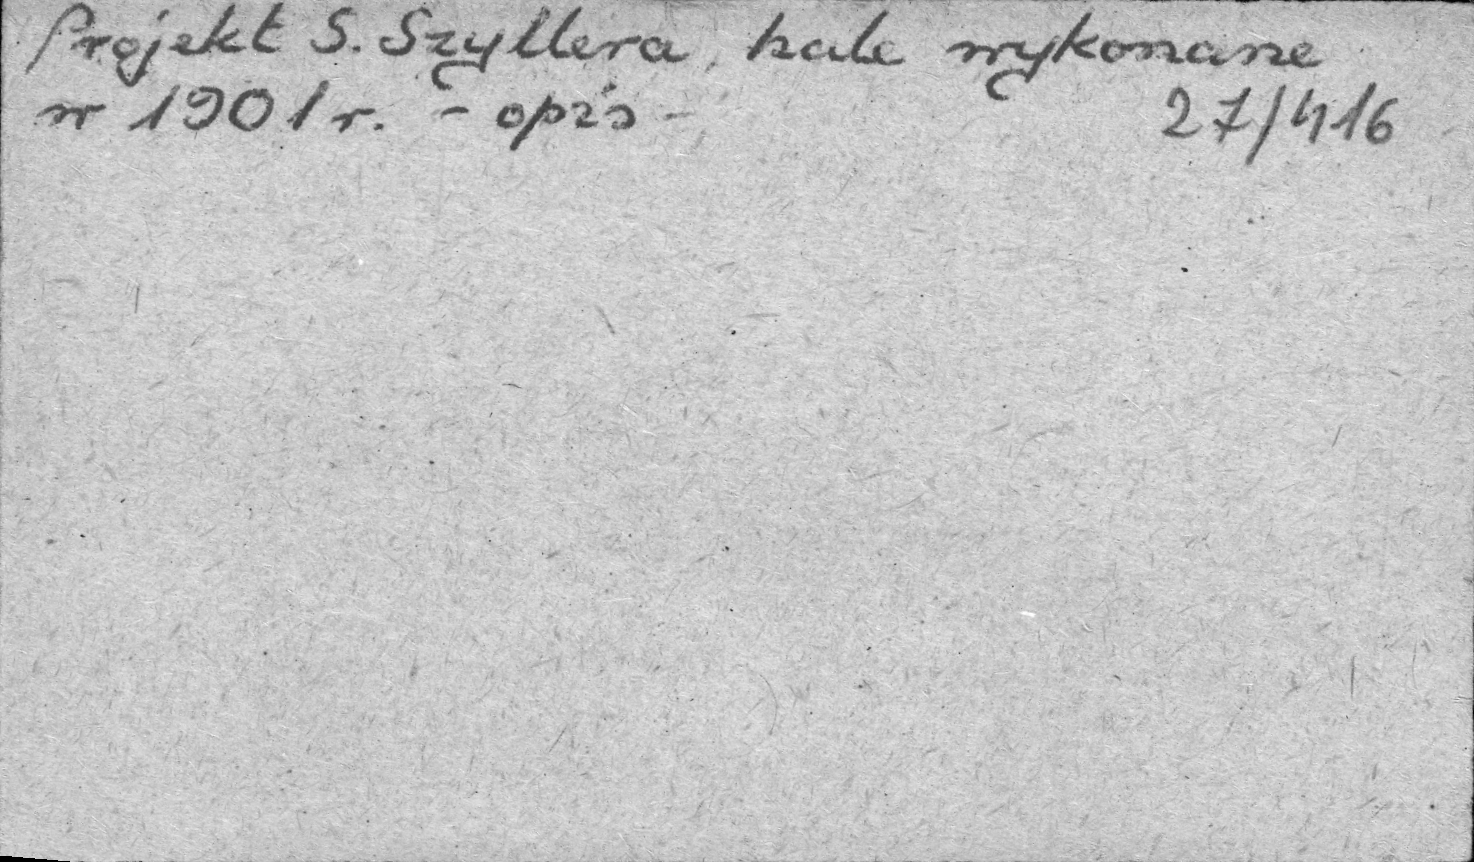 Projekt S. Szyllera, hale wykonane
w 1901 r. - opis - 27/416